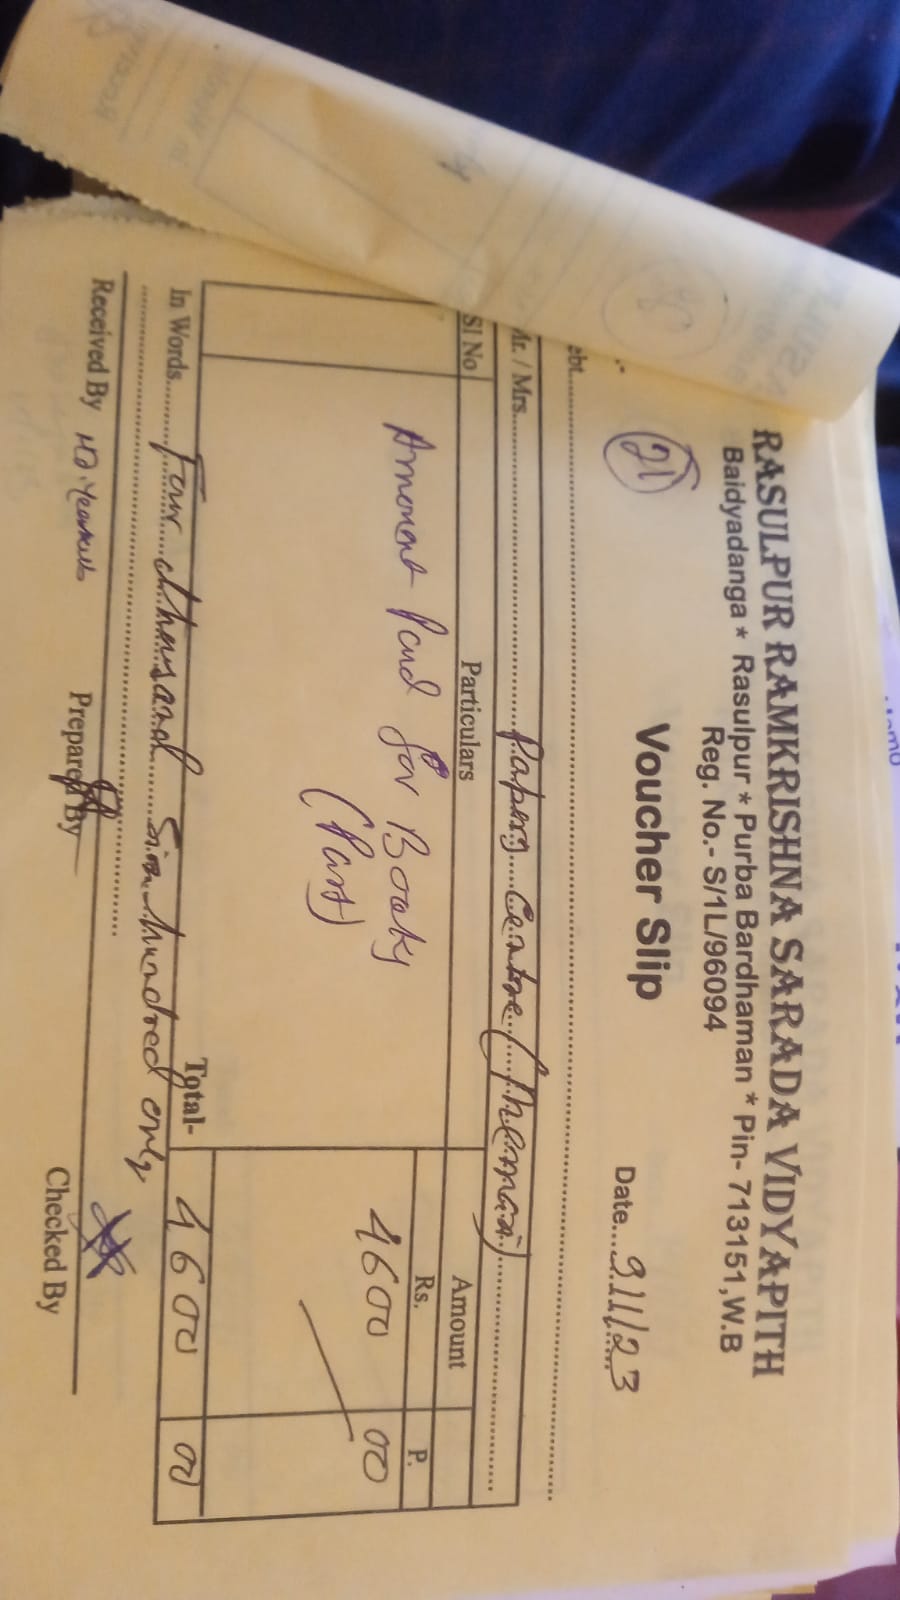 RASULPUR RAMKRISHNA SARADA VIDYAPITH
Baidyadanga * Rasulpur * Purba Bardhaman * Pin- 713151,W.B
Reg. No.- S/1L/96094
21 Voucher Slip Date... 9/11/23
ebt.
Mr. / Mrs. Paper Centre (Memari)
Sl No Particulars Amount
Rs. P.
Amount Paid for Books 4600 00
(Part)
Total- 4600 00
In Words. Four thousand Six hundred only
Received By Prepared By Checked By